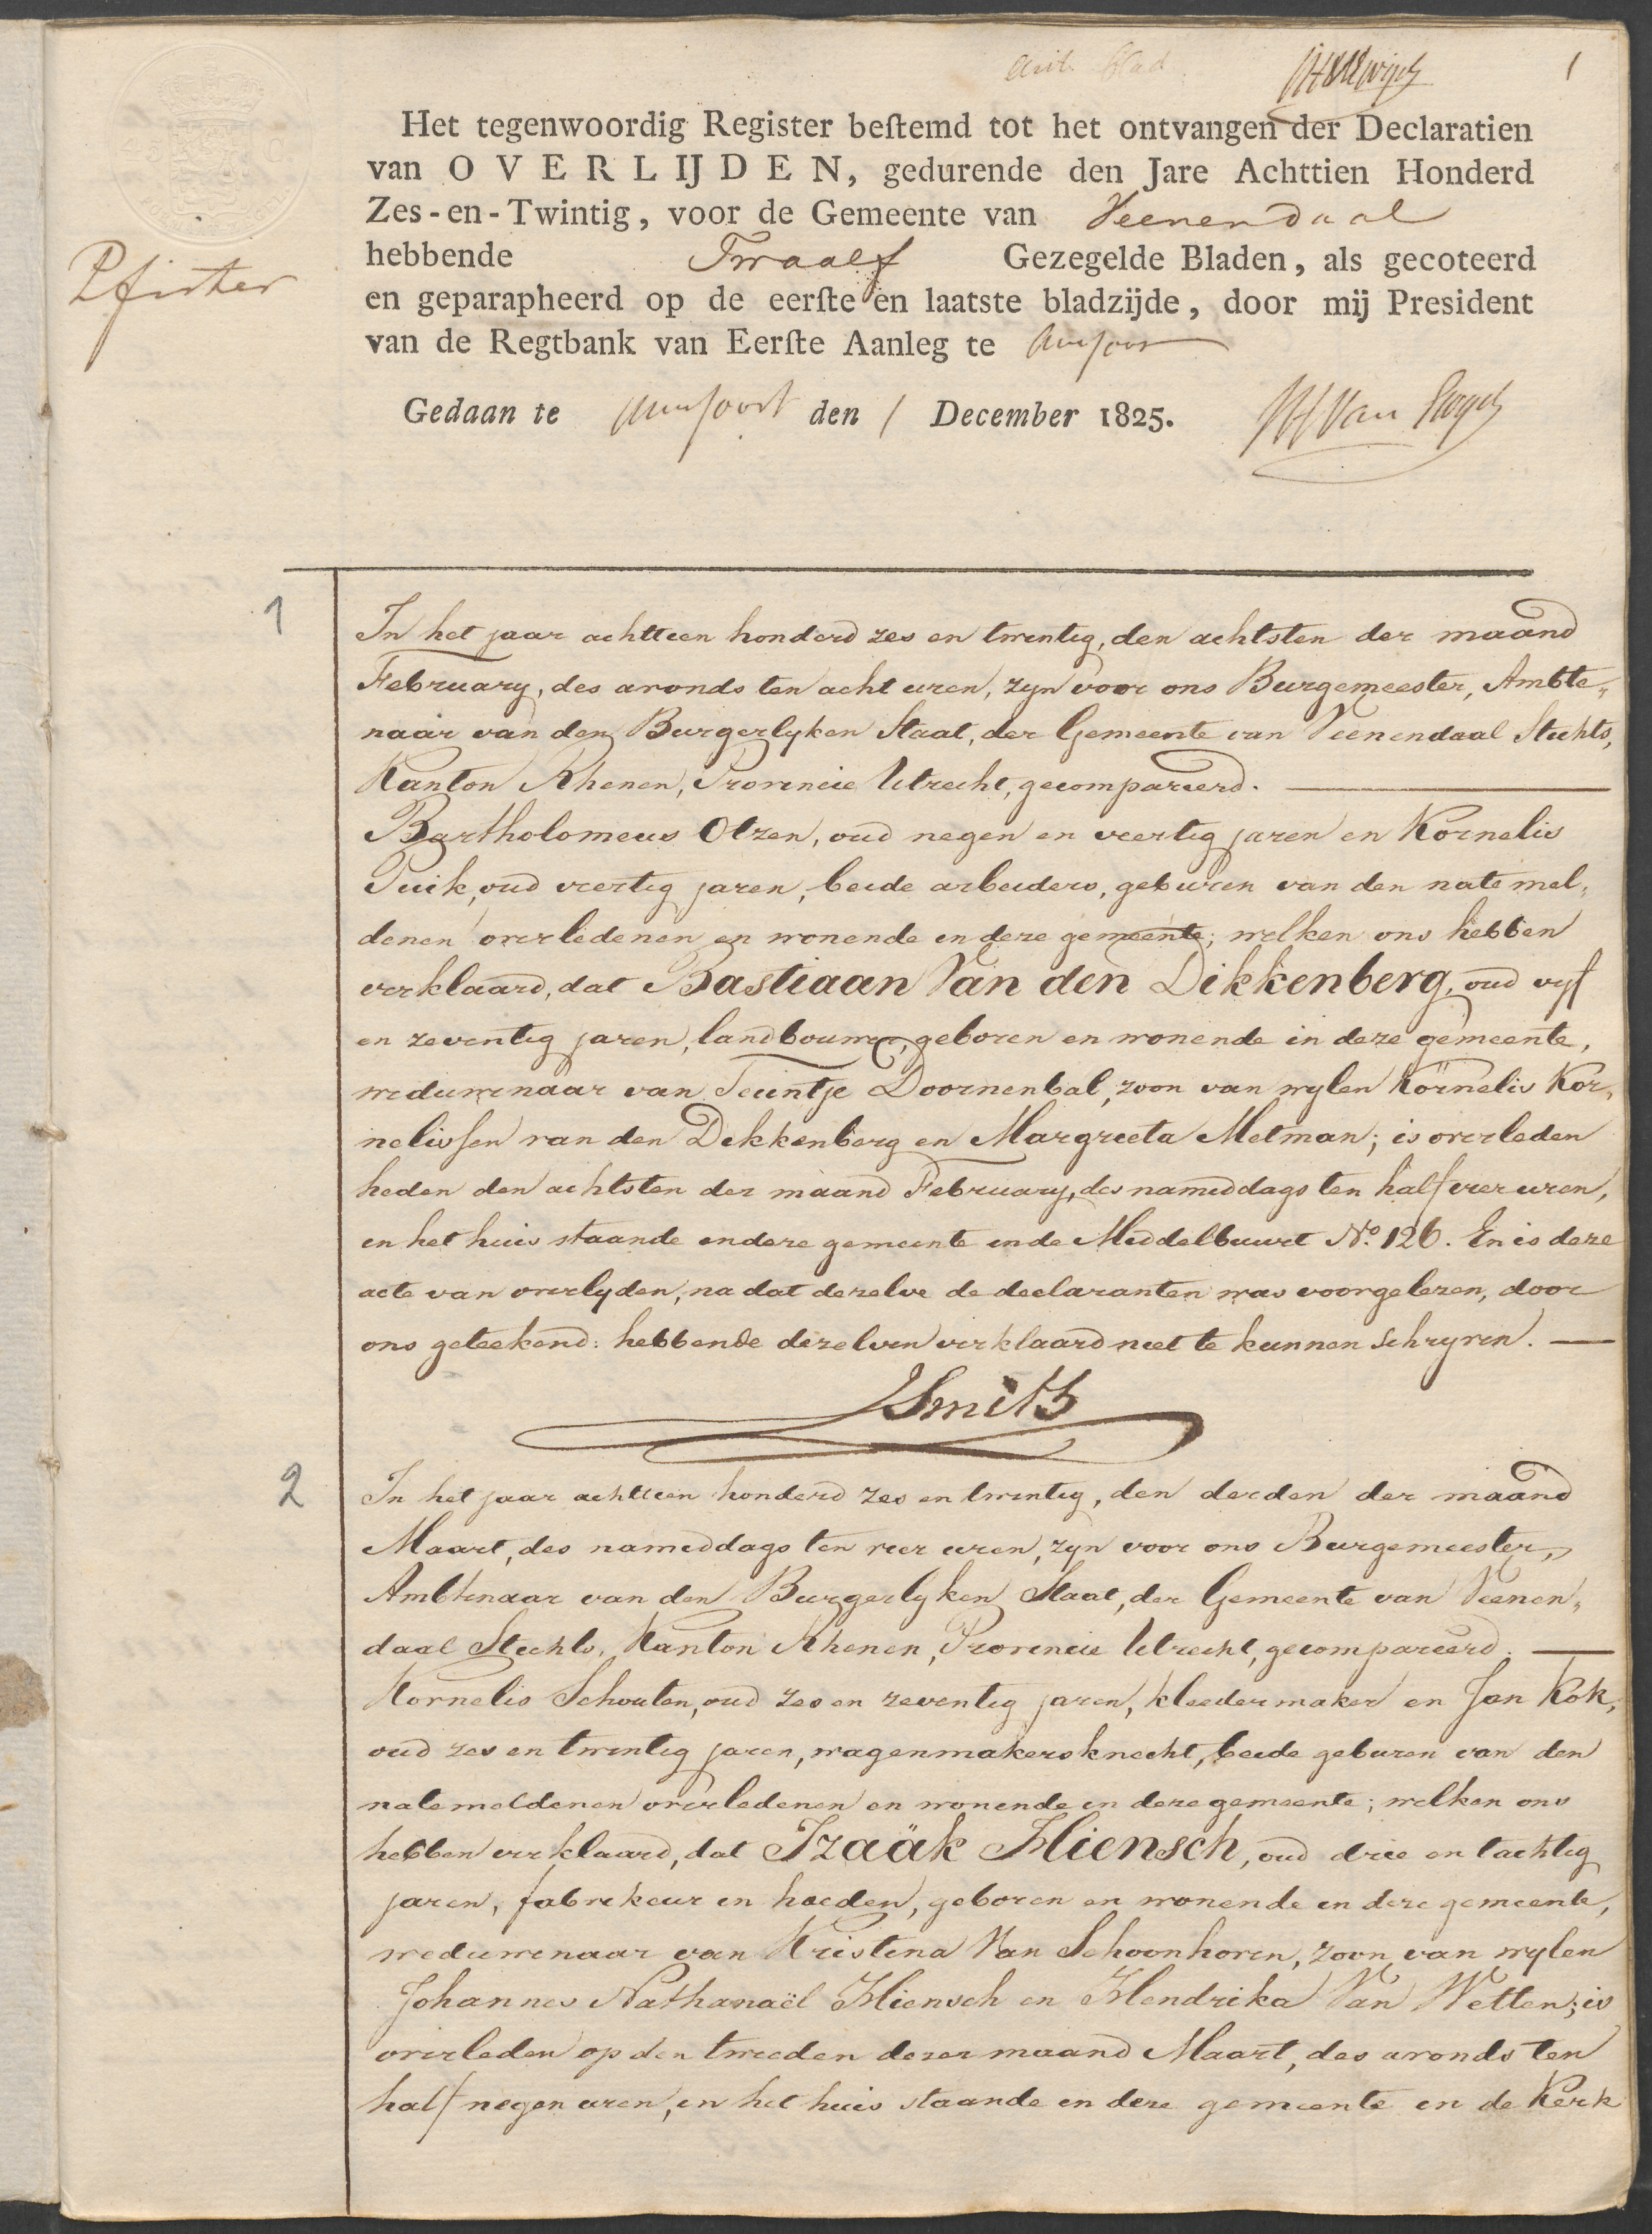 1
Het tegenwoordig Register beſtemd tot het ontvangen der Declaratien
van OVERLIJDEN, gedurende den Jare Achttien Honderd
Zes-en-Twintig, voor de Gemeente van Veenendaal
hebbende Twaalf Gezegelde Bladen, als gecoteerd
en geparapheerd op de eerſte en laatste bladzijde, door mij President
van de Regtbank van Eerſte Aanleg te
Pfister
Gedaan te den 1 December 1825.
1
In het jaar achttien honderd zes en twintig, den achtsten der maand
February, des avonds ten acht uren, zyn voor ons Burgemeester, Ambte„
naar van den Burgerlyken Staat, der Gemeente van Veenendaal Stichts,
Kanton Rhenen, Provincie Utrecht, gecompareerd.
Bartholomeus Olzen, oud negen en veertig jaren en Kornelis
Puik, oud veertig jaren, beide arbeiders, geburen van den nate mel„
denen overledenen en wonende in deze gemeente; welken ons hebben
verklaard, dat Bastiaan Van den Dikkenberg, oud vyf
en zeventig jaren, landbouwer, geboren en wonende in deze gemeente,
weduwenaar van Teuntje Doornenbal, zoon van wylen Kornelis Kor„
nelissen van den Dikkenberg en Margreeta Metman; is overleden
heden den achtsten der maand February, des namiddags ten half vier uren,
in het huis staande in deze gemeente in de Middelbuurt No. 126. En is deze
acte van overlyden, na dat dezelve de declaranten was voorgelezen, door
ons geteekend: hebbende dezelven verklaard niet te kunnen schryven.
Smits
2
In het jaar achttien honderd zes en twintig, den derden der maand
Maart, des namiddags ten vier uren, zyn voor ons Burgemeester,
Ambtenaar van den Burgerlyken Staat, der Gemeente van Veenen„
daal Stichts, Kanton Rhenen, Provincie Utrecht, gecompareerd.
Kornelis Schouten, oud zes en zeventig jaren, kleedermaker en Jan Kok,
oud zes en twintig jaren, wagenmakersknecht, beide geburen van den
natemeldenen overledenen en wonende in deze gemeente; welken ons
hebben verklaard, dat Izaäk Hiensch, oud drie en tachtig
jaren, fabrikeur in hoeden, geboren en wonende in deze gemeente,
weduwenaar van Kristina Van Schoonhoven, zoon van wylen
Johannes Nathanaël Hiensch en Hendrika Van Wetten; is
overleden op den tweeden dezer maand Maart, des avonds ten
half negen uren, in het huis staande in deze gemeente in de Kerk